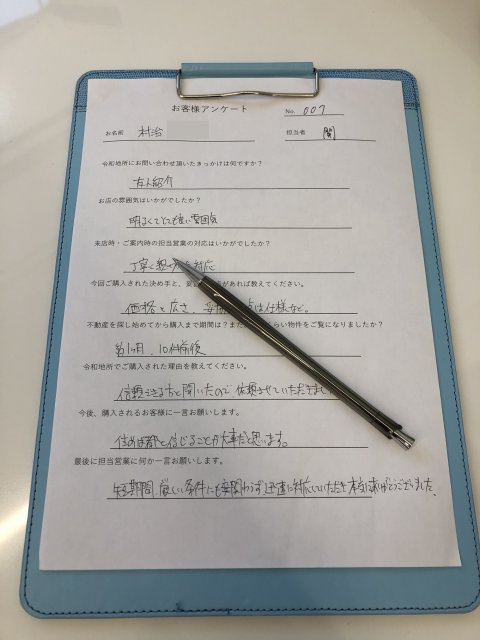 お客様アンケート
No. 007
お名前 村治
担当者 関
令和地所にお問い合わせ頂いたきっかけは何ですか?
友人紹介
お店の雰囲気はいかがでしたか?
明るくてとても良い雰囲気
来店時・ご案内時の担当営業の対応はいかがでしたか?
丁寧 対応
今回ご購入された決め手と、妥 があれば教えてください。
価格と広さ、妥 は仕様など。
不動産を探し始めてから購入まで期間は?また らい物件をご覧になりましたか?
約1ヶ月、10件前後
令和地所でご購入された理由を教えてください。
信頼できる方と聞いたので、依頼させていただきました
今後、購入されるお客様に一言お願いします。
住めば都と信じることが大事だと思います。
最後に担当営業に何か一言お願いします。
短期間、厳しい条件にも 関わらず、迅速に対応していただき本当にありがとうございました。